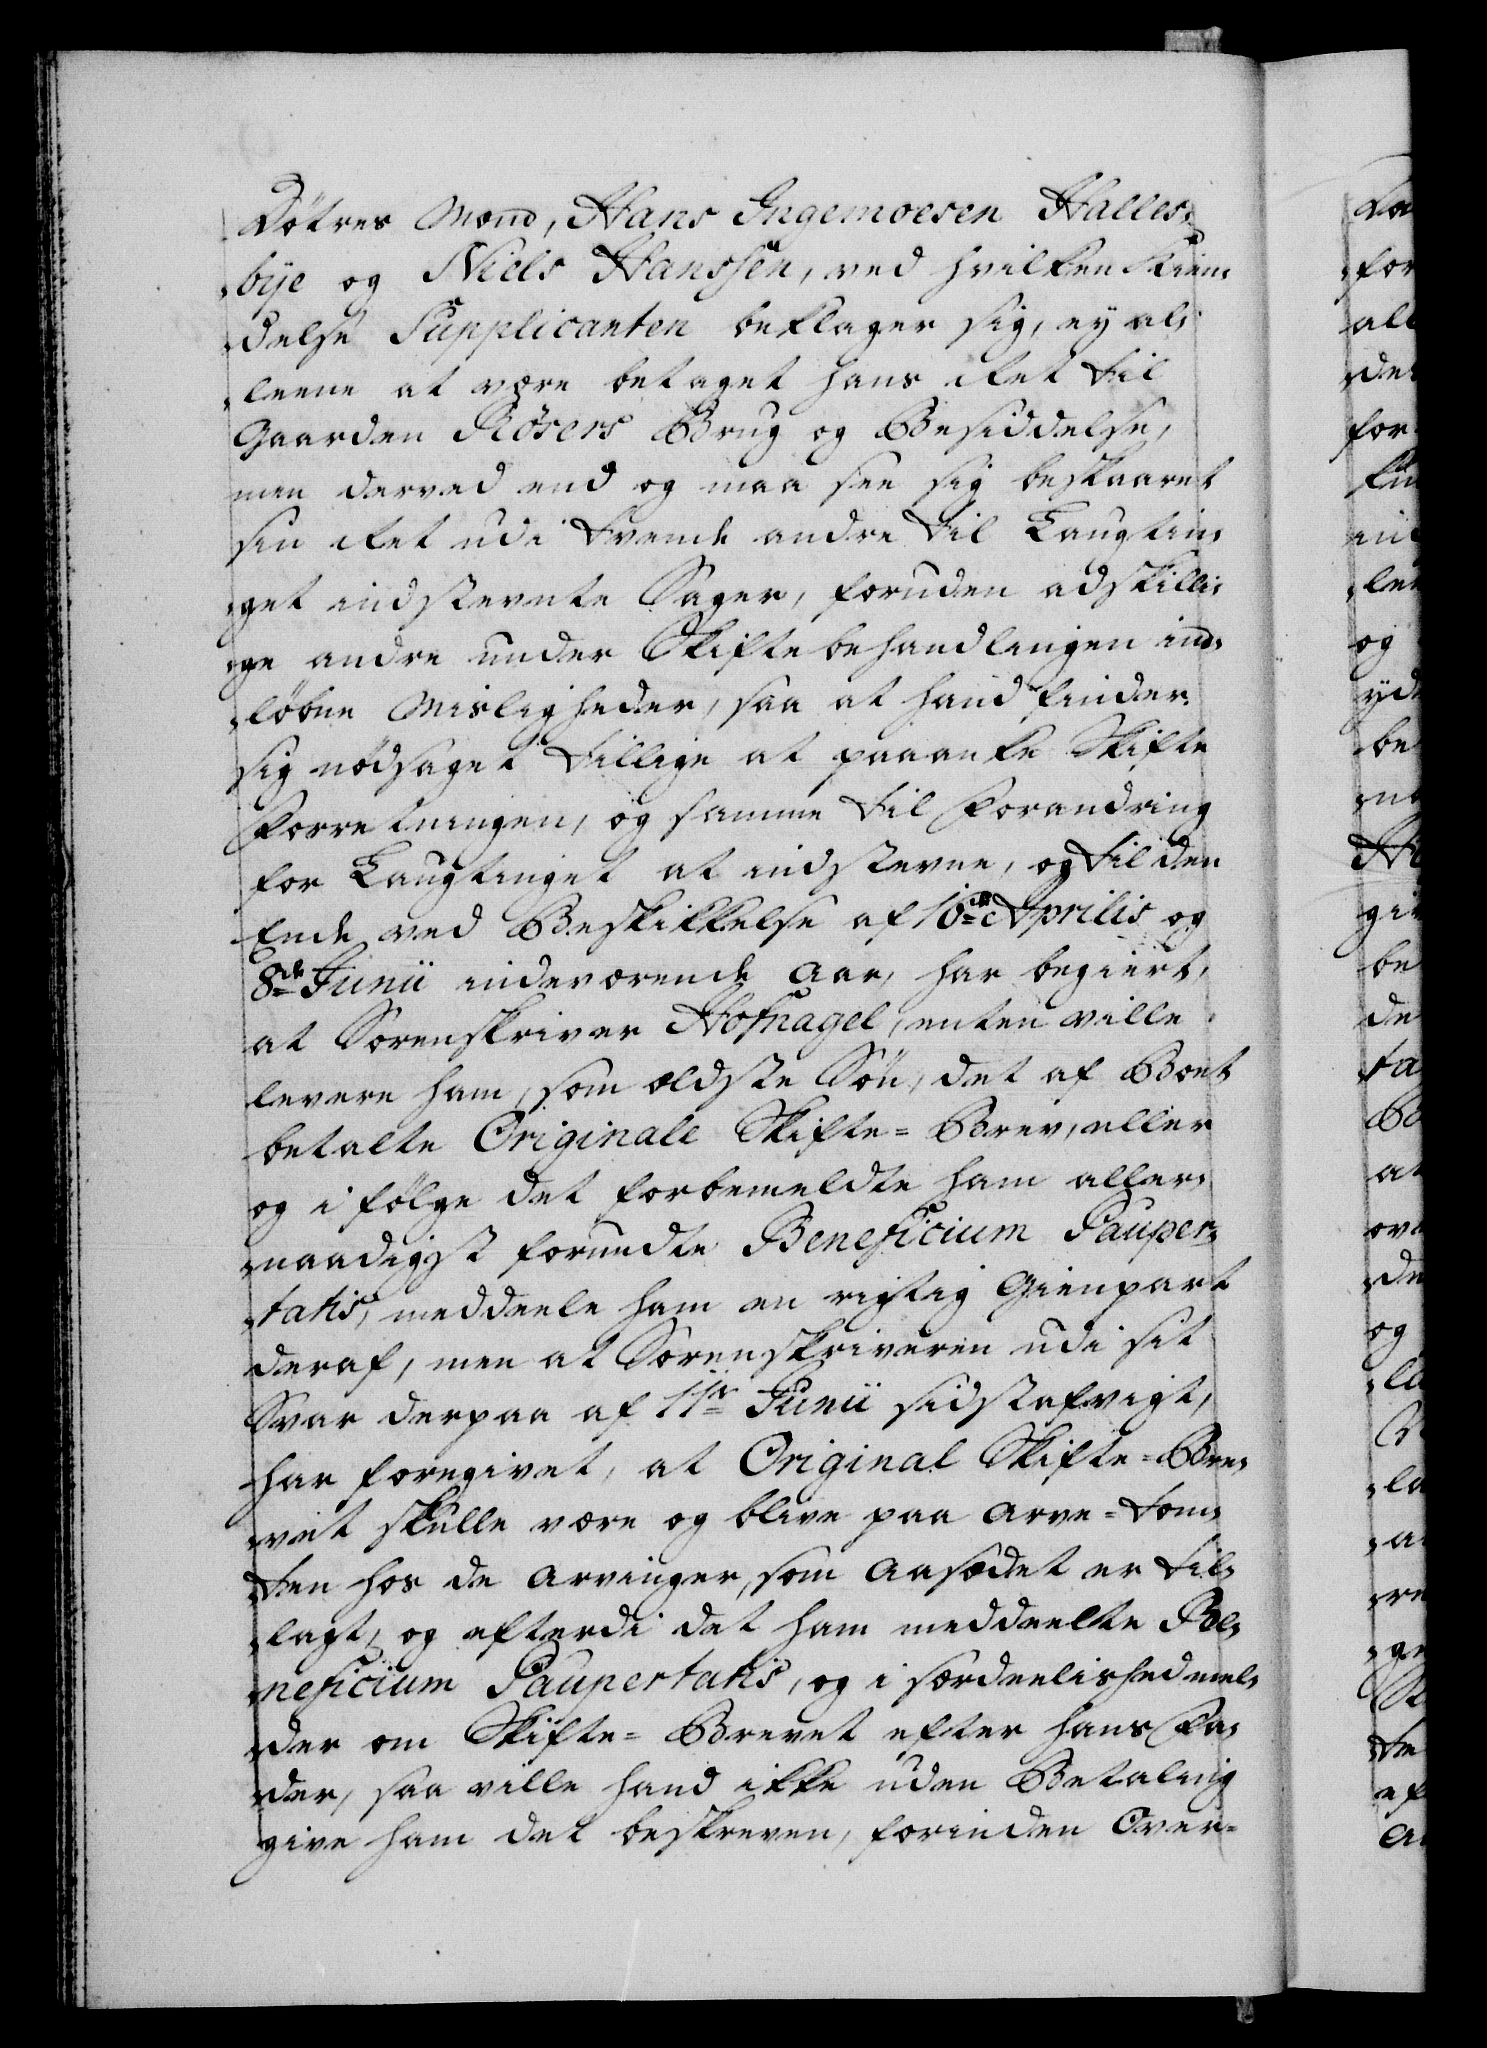 Døtres Mænd, Hans Ingemoesen Halles¬
bye og Niels Hanssen, ved hvilken Kien¬
delse Supplicanten beklager sig, ey al¬
leene at være betaget hans Ret til
Gaarden Røsers Brug og Besiddelse,
men derved end og maa see sig beskaaret
sin Ret udi tvende andre til Laugtin¬
get indstevnte Sager, foruden adskilli¬
ge andre under Skiftebehandlingen ind¬
løbne Misligheder, saa at hand finder
sig nødsaget tillige at paaanke Skifte
Forretningen, og samme til Forandring
for Laugtinget at indstevne, og til den
Ende ved Beskikkelse af 16de Aprilis og
8de Junii indeværende Aar, har begiert,
at Sorenskriver Hofnagel, enten ville
levere ham, som ældste Søn, det af Boet
betalte Originale Skifte= Brev, eller
og i følge det forbemeldte ham aller¬
naadigst forundte Beneficium Pauper¬
tatis, meddeele ham en rigtig Gienpart
deraf, men at Sorenskriveren udi sit
Svar derpaa af 11te Junii sidstafvigt,
har foregivet, at Original Skifte=Bre¬
vet skulle være og blive paa Arve=Tom¬
ten hos de Arvinger, som Aasædet er til¬
lagt, og efterdi det ham meddeelte Be¬
neficium Paupertatis, og i særdeelished mel¬
der om Skifte= Brevet efter hans Fa¬
der, saa ville hand ikke uden Betaling
give ham det beskreven, forinden Over=